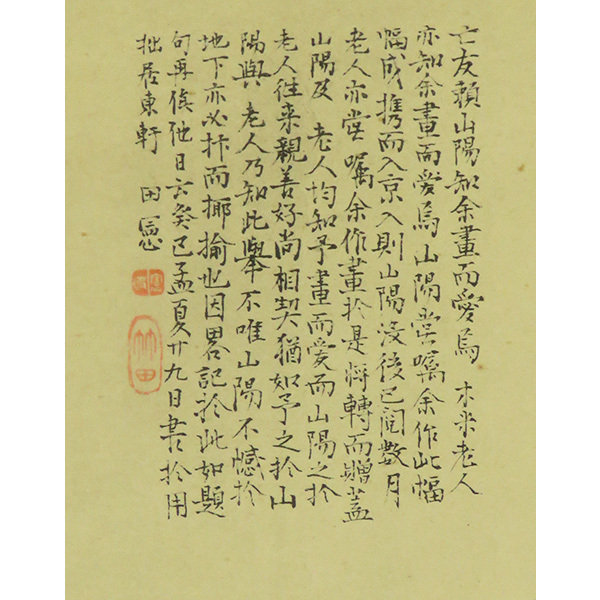 亡友頼山陽知余畫而愛焉木米老人
亦知余畫而愛焉山陽嘗嘱余作此幅
幅成携而入京入則山陽没後已閲數月
老人亦嘗嘱余作畫於是将轉而贈蓋
山陽及老人均知予畫而愛而山陽之於
老人徃来親善好尚相契猶如予之於山
陽與老人乃知此擧不唯山陽不憾於
地下亦必抃而揶揄也因畧記於此如題
句再俟他日云癸巳孟夏廿九日書於用
拙居東軒 田憲
竹田